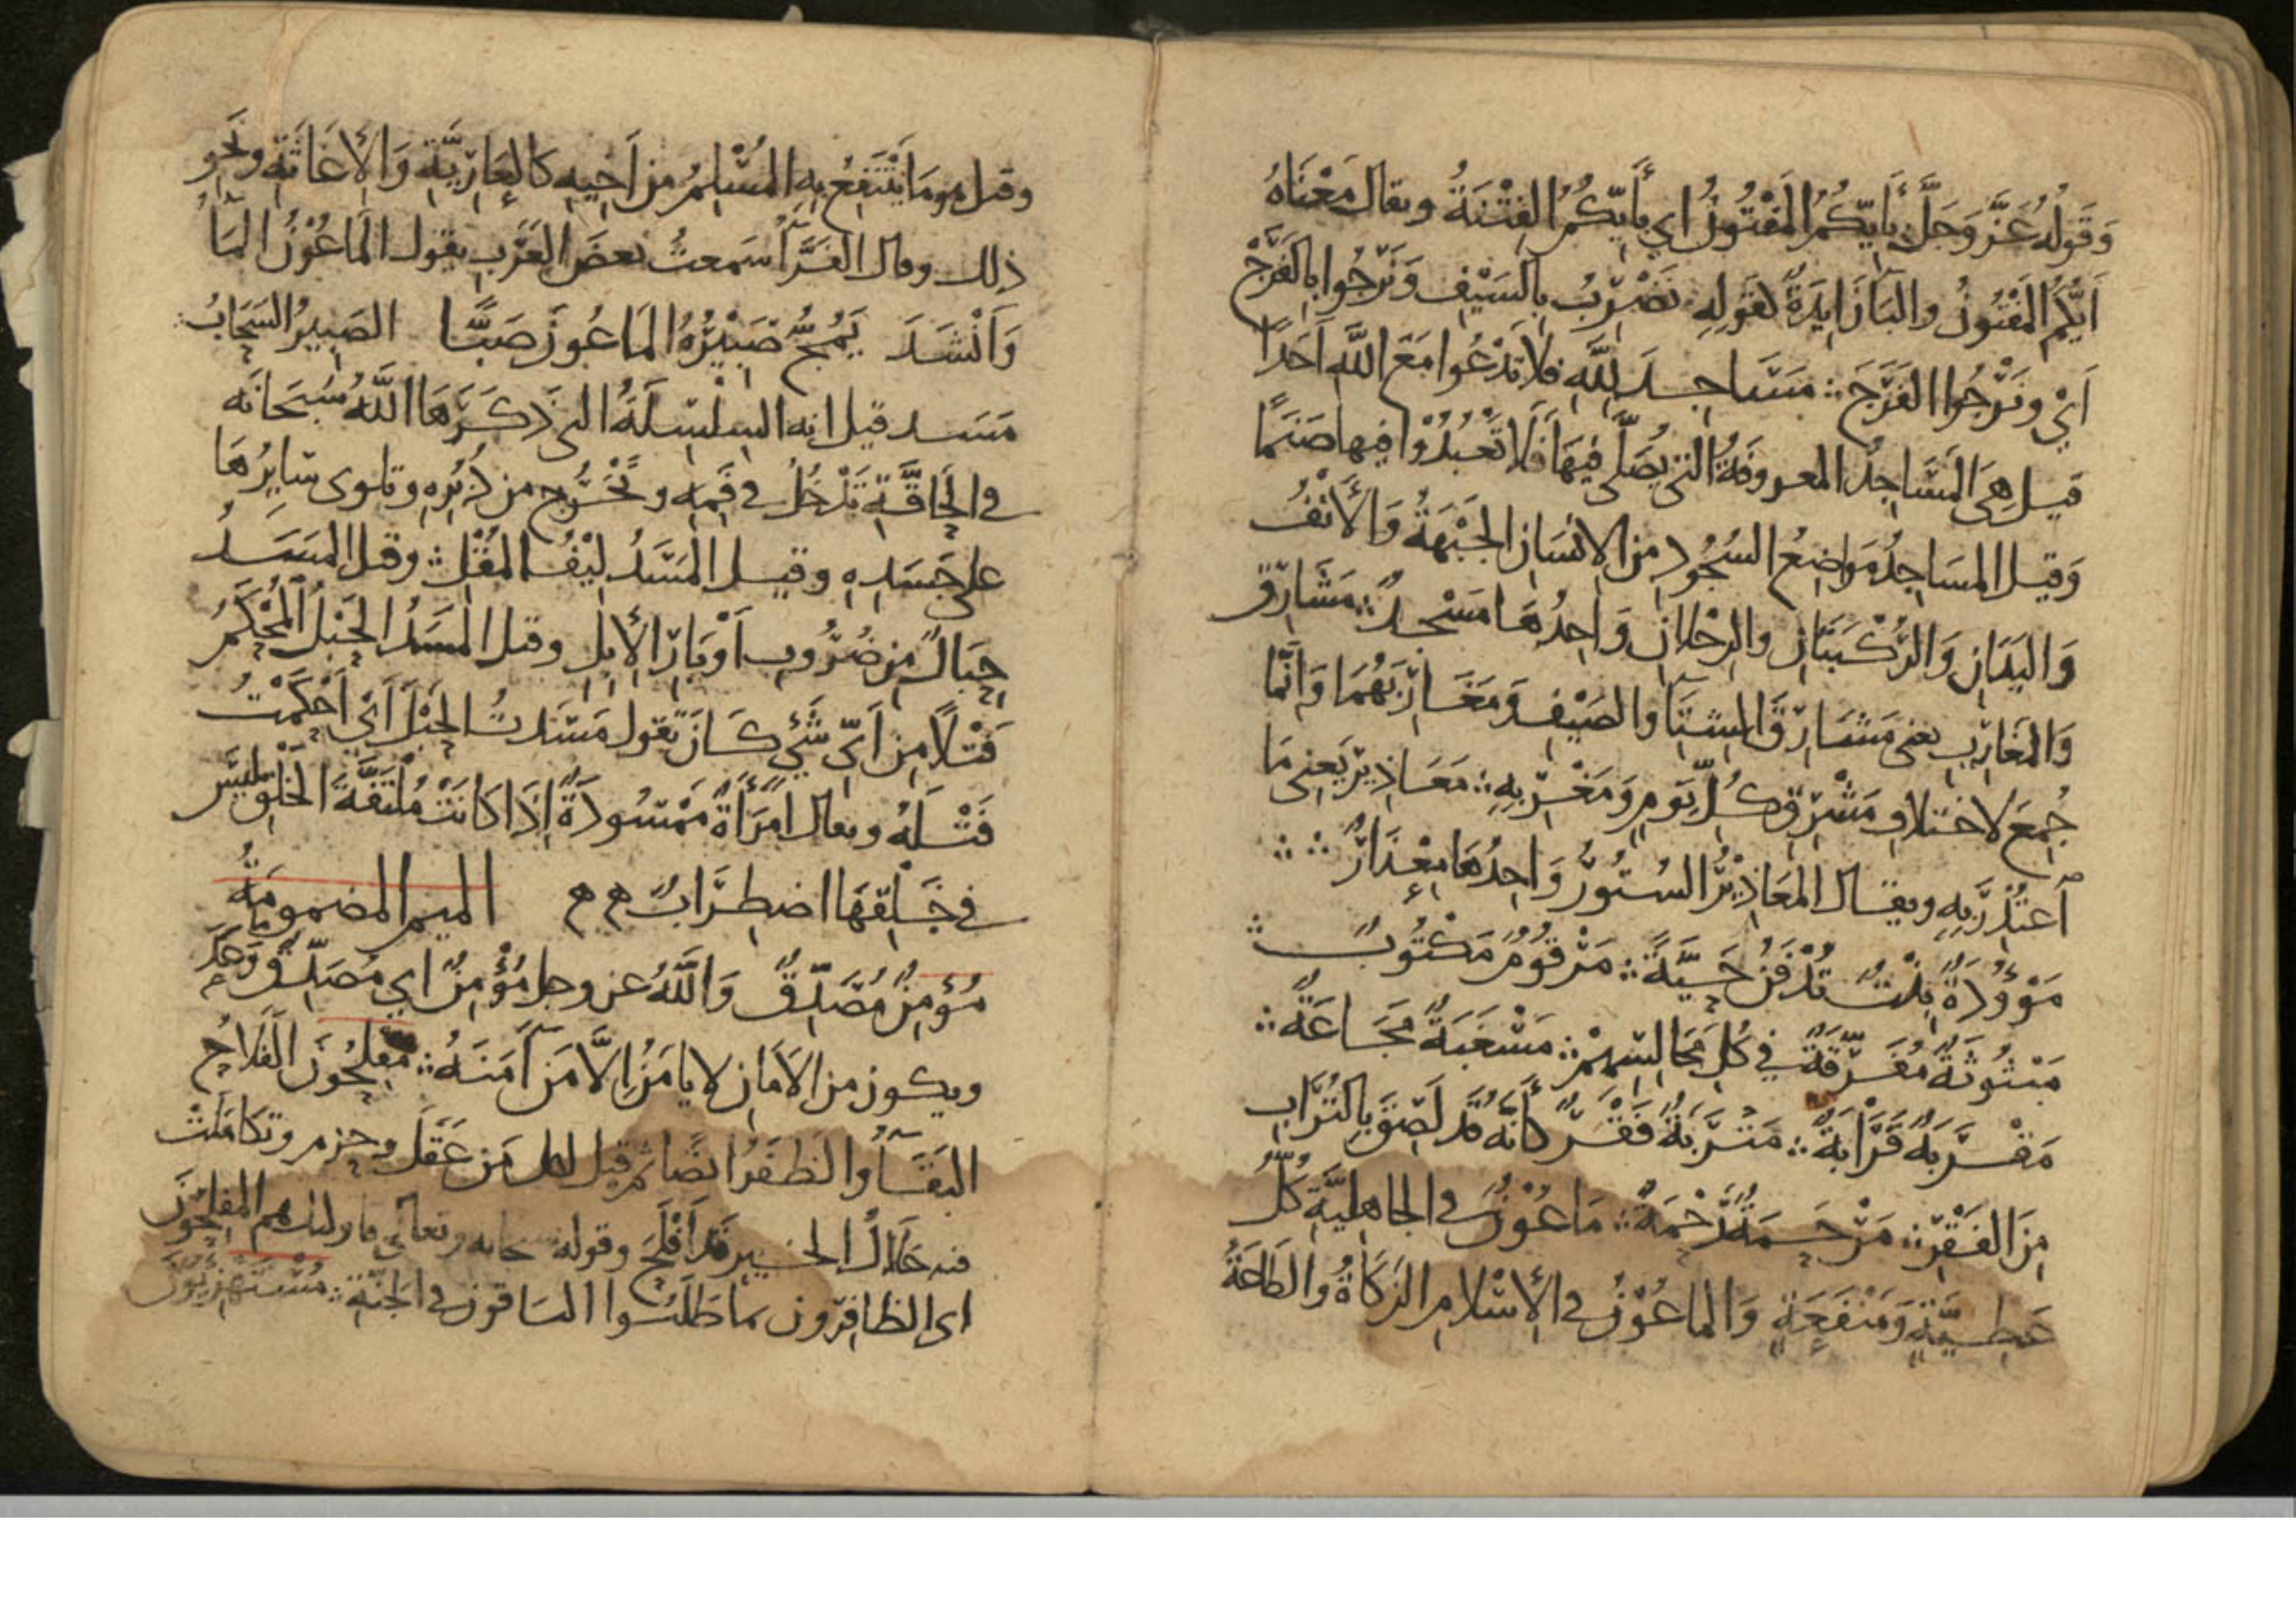 وَقَوْلُهُ عَزَّ وَجَلَّ بِأَيِّكُمُ المَفْتُونُ اي بِأَيِّكُمُ الفِتْنَةُ ويقال مَعْنَاهُ
اَيُّكُمُ المَفْتُونُ والبَآ زَايِدَةٌ كقولِهِ نَضْرِبُ بِالسَيْفِ وَنَرْجُوا بِالفَرَجْ
اَيْ ونَرْجُوا الفَرَجَ ∴ مَسَاجِدَ لِلَّهِ فلا تَدْعُوا مَعَ اللَّهِ اَحَدًا
قيل هِىَ المَسَاجِدُ المعروفَةُ التى يُصَلَّى فِيهَا فَلَا تَعْبُدُوْا فيها صَنَمًا
وَقيل المسَاجِدُ مَوَاضِعُ السُجُودِ من الانْسَانِ الجَبْهَةُ وَالأَنْفُ
وَاليَدَانِ وَالرُكْبَتَانِ والرِجْلانِ وَاحِدُهَا مَسْجِدٌ ∴ مَشَارِق
وَالمَغَارِبِ يعنى مَشَارِقَ الشِتَآ والصَيْفِ وَمَغَارِبَهُمَا وَانَّمَا
جُمِعَ لاختلافِ مَشْرِقِ كُلِّ يَوْمٍ وَمَغْرِبِهِ ∴ مَعَاذِيرَ يَعنِى مَا
اَعتُذِرَ بِهِ ويقال المَعَاذِيْرُ السُتُورُ وَاحِدُهَا مِعْذَارٌ ∴ ∴
مَوْؤُدَةٌ بِنْتٌ تُدْفَنُ حَيَّةً ∴ مَرْقُوْمٌ مَكْتُوبٌ ∴
مَبْثُوثَةٌ مُفَرَّقَةٌ في كُلِ مَجَالِسِهِمْ ∴ مَسْغَبَةٌ مَجَاعَةٌ ∴
مَقْرَبَةٌ قَرَابَةٌ ∴ مَتْرَبَةٌ فَقْرٌ كَأَنَّهُ قَد لَصِقَ بِالتُرَابِ
مِنَ الفَقْرِ ∴ مَرْحَمَةٌ رَحْمَةٌ ∴ مَاعُوْنُ فى الجاهليَّةِ كُلُّ
عَطِيَّةٍ وَمَنْفَعَةٍ وَالماعُوْنُ فى الأِسْلامِ الزَكَاةُ والطَاعَةُ
وقيل هو مَا يَنْتَفِعُ بِهِ المُسْلِمُ من اَخِيهِ كالعَارِيَّةِ وَالأِغَاثَةِ ونَحْوِ
ذلك وقال الفَرَّآ سَمعتُ بعضَ العَرَبِ يقول المَاعُوْنُ المَآ
وَاَنْشَدَ يَمُجُّ صَبِيْرُهُ المَاعُونَ صَبًّا الصَبِيرُ السَحَابُ ∴
مَسَد قيل انه السِلْسِلَةُ التى ذَكَرَهَا اللَّهُ سُبحَانَه
فى الحَاقَّةِ تَدْخُلُ فى فَمِهِ وتَخْرُج من دُبُرِهِ وتلوى سَايِرُهَا
على جَسَدِهِ وقيل المَسَدُ لِيْفُ المُقْلِ ∴ وقيل المَسَدُ
حِبَالٌ مِن ضُرُوبِ اَوْبَارِ الأِبِلِ وقيل المَسَدُ الحَبْلُ المُحْكَمُ
فَتْلًا مِن اَىِّ شَيْءٍ كَانَ تقول مَسَدتُ الحَبْلَ اَيْ اَحْكَمْتُ
فَتْلَهُ ويقال امْرَأَةٌ مَمْسُودَةٌ اِذَا كَانَتْ مُلْتَفَّةَ الخَلْقِ ليسَ
فى خَلْقِهَا اضطِرَابٌ هـ هـ الميم المضمومَةُ
مُؤمِنٌ مُصَدِّقٌ وَاللَّهُ عز وجل مُؤْمِنٌ اي مُصَدِّقٌ وَعدَهُ
ويكون من الاَمَانِ لا يامَنُ اِلَّا مَن آمَنَهُ ∴ مفلِحُونَ الفَلَاحُ
البَقَآ والظَفَرُ ايضًا ثم قيل لكل مَن عَقَلَ وحزم وتكَامَلَتْ
فيه خِلَالُ الخير قَد اَفْلَحَ وقوله سبحانه وتعالى فاوليك هم المفلِحُونَ
اى الظافِرون بما طَلَبُوا الباقون فى الجَنَّةِ ∴ مُسْتَهْزِيُونَ